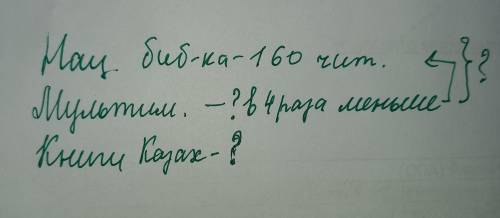 Нац. биб-ка-160 чит.
Мультим. -? в 4 раза меньше } ?
Книги Казах-?